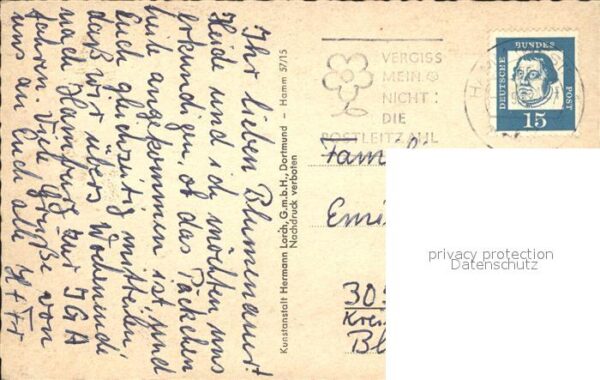 Ihr lieben Blumenauer!
Heide und ich möchten uns
erkundigen, ob das Päckchen
heile angekommen ist und
Euch gleichzeitig mitteilen,
daß wir übers Wochenende
nach Hamburg zur IGA
fahren. Viele Grüße von
uns an Euch alle
Kunstanstalt Hermann Lorch, G.m.b.H., Dortmund – Hamm 57/15
Nachdruck verboten
VERGISS
MEIN
NICHT:
DIE
POSTLEITZAHL
DEUTSCHE
BUNDES
POST
15
Fami
30
Kre
Bl
privacy protection
Datenschutz